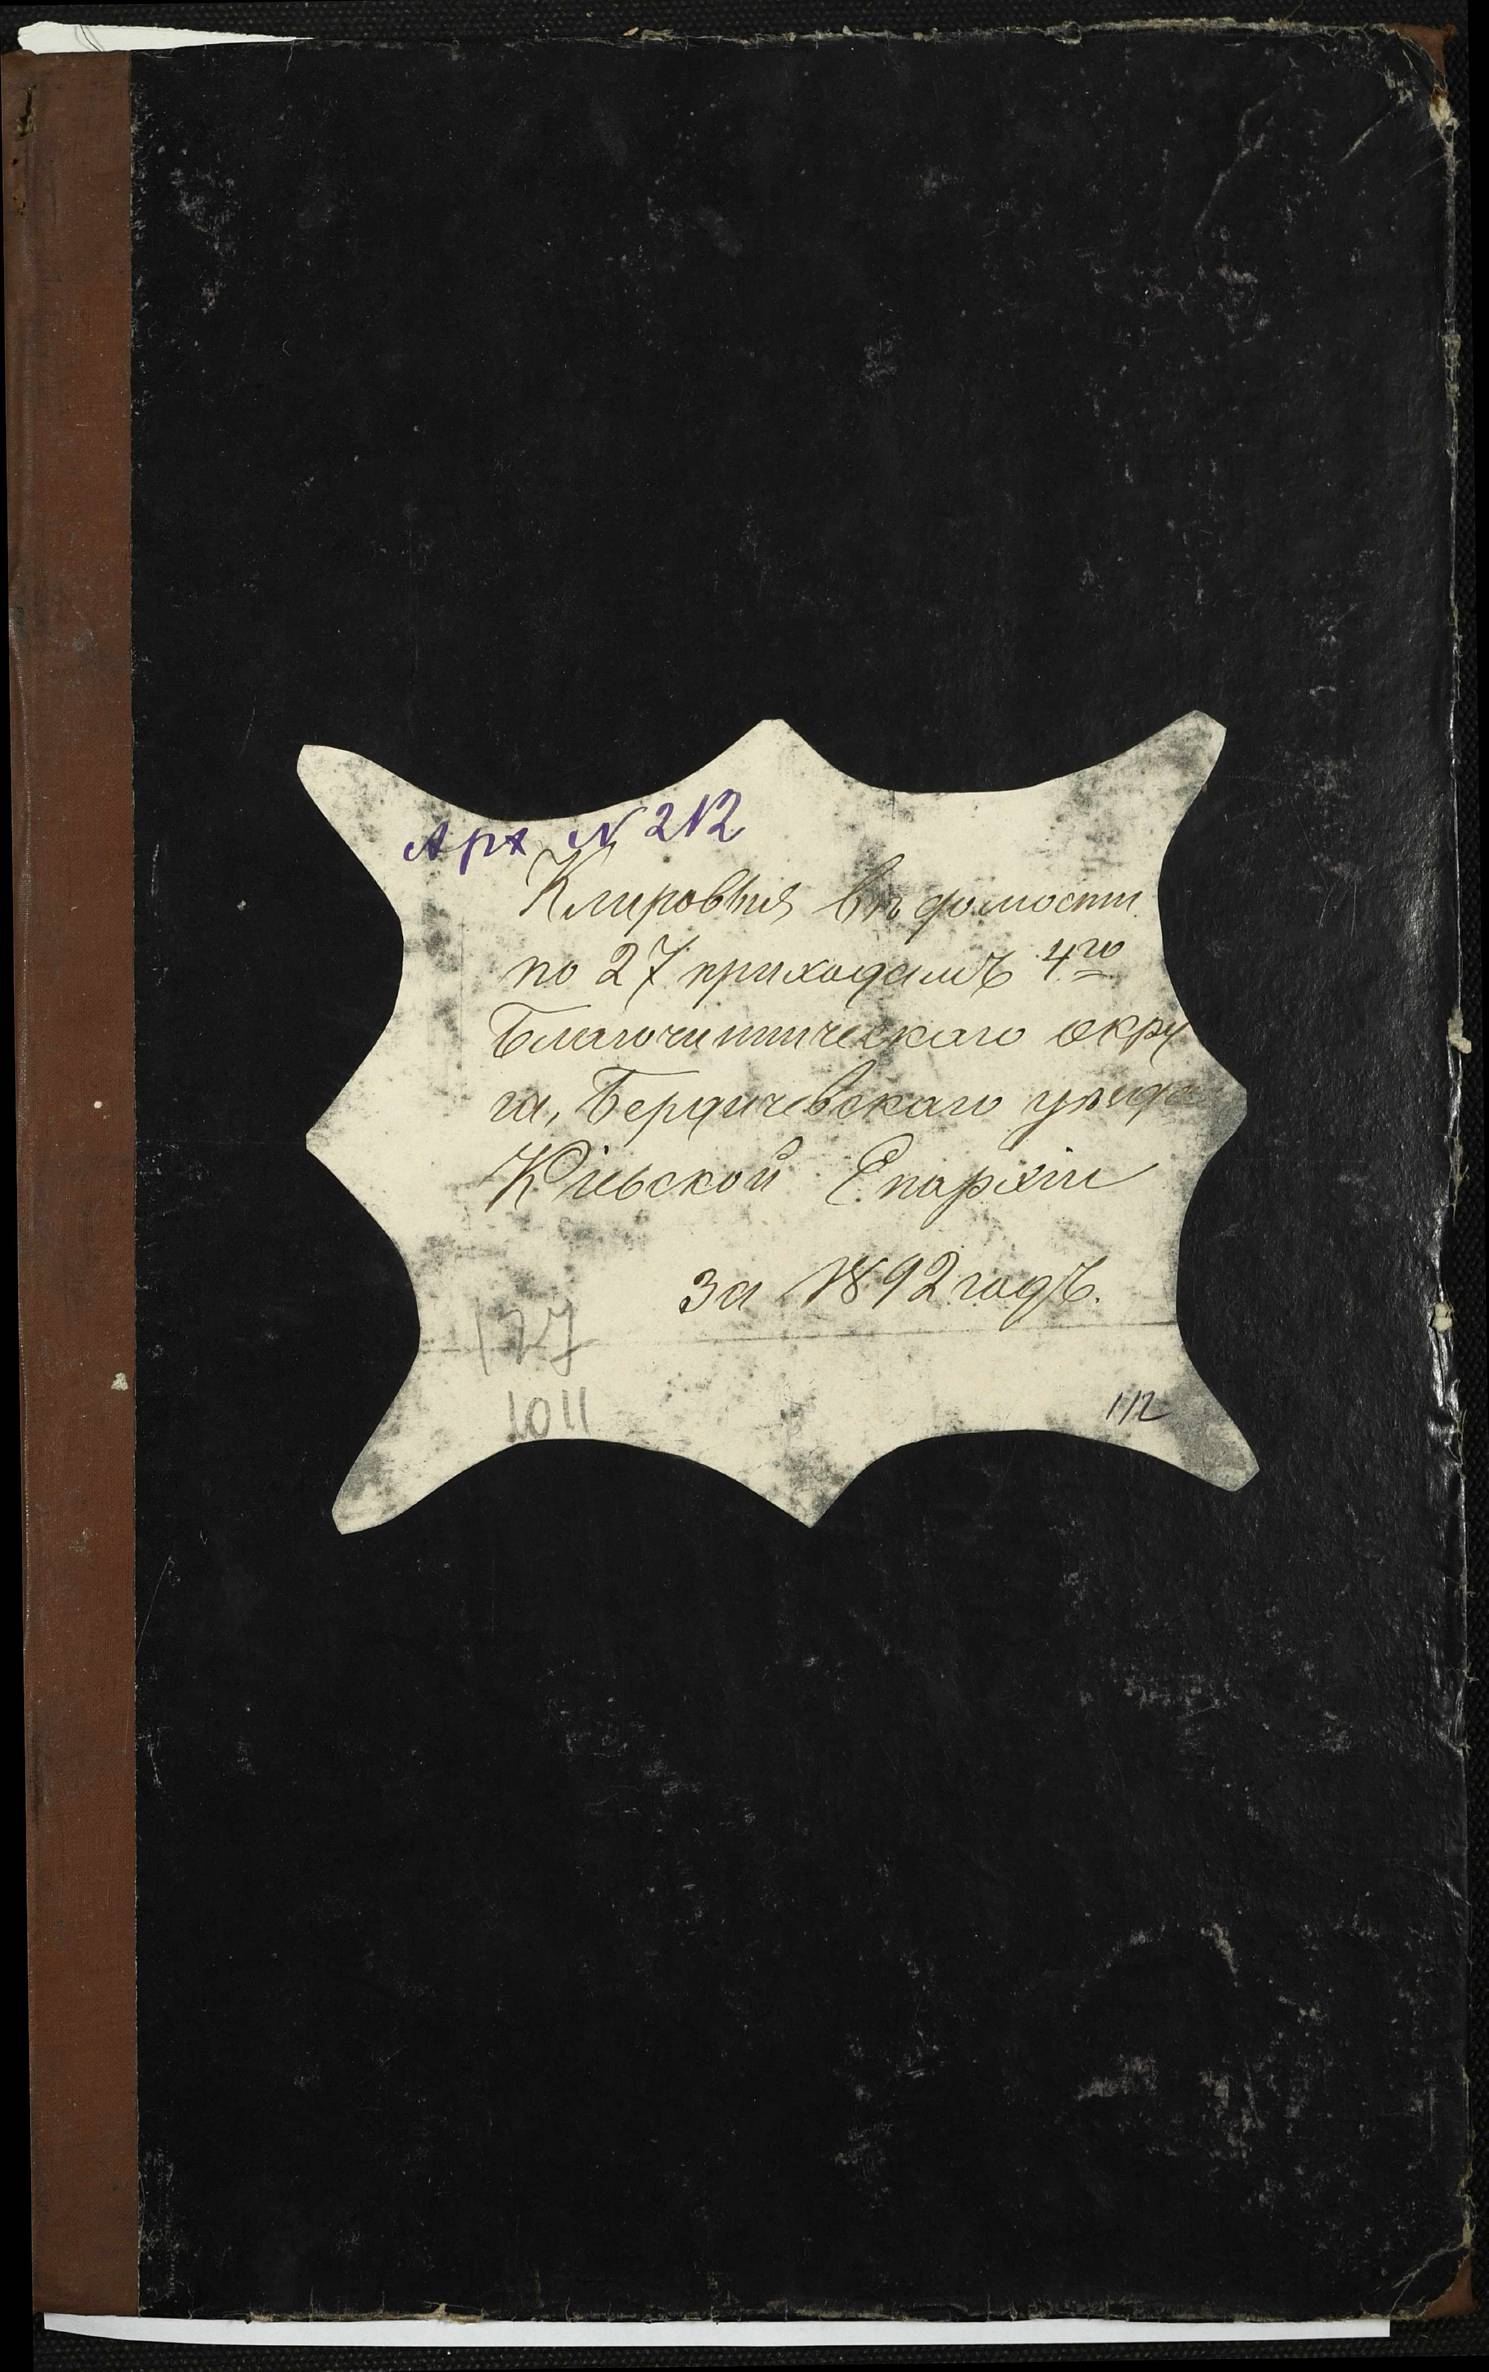 Арх № 212
Клировыя вѣдомости
по 27 приходамъ 4го
Благочинническаго окру
га, Бердичевскаго уѣзда
Кіевской Епархіи
за 1892 годъ.
127
1011
112